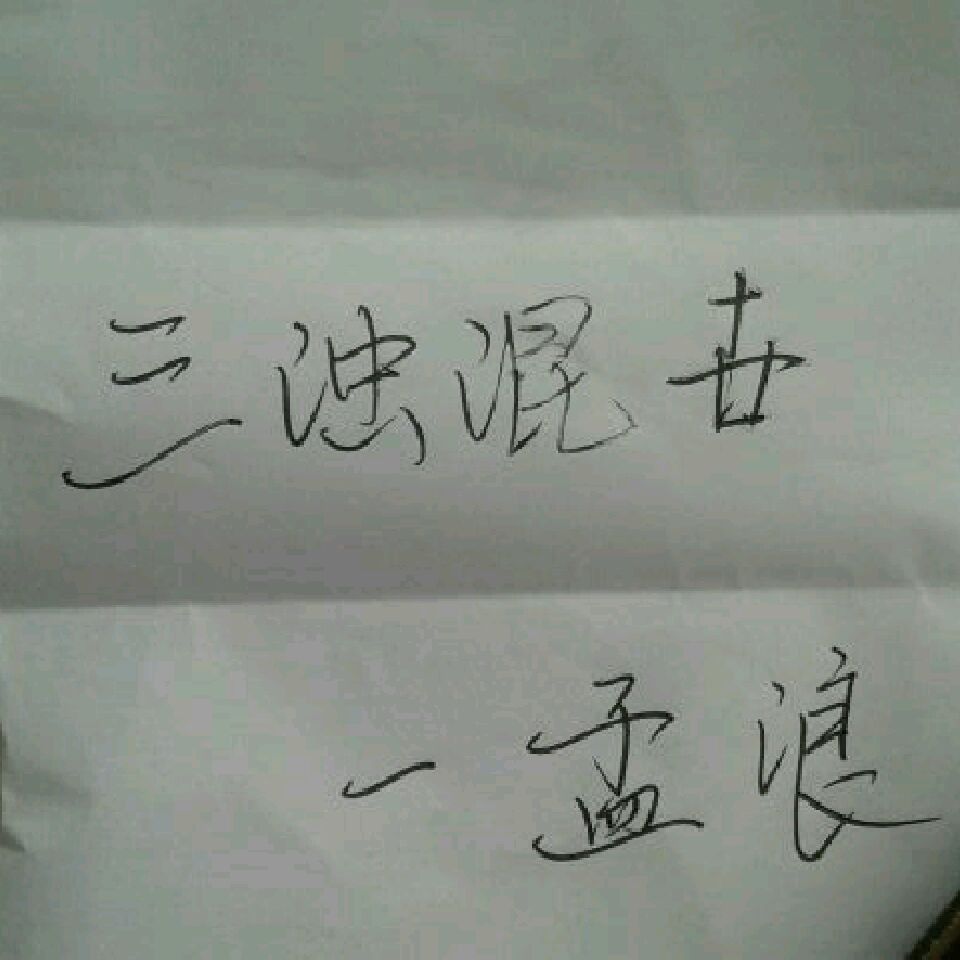 三浊混世
一孟浪